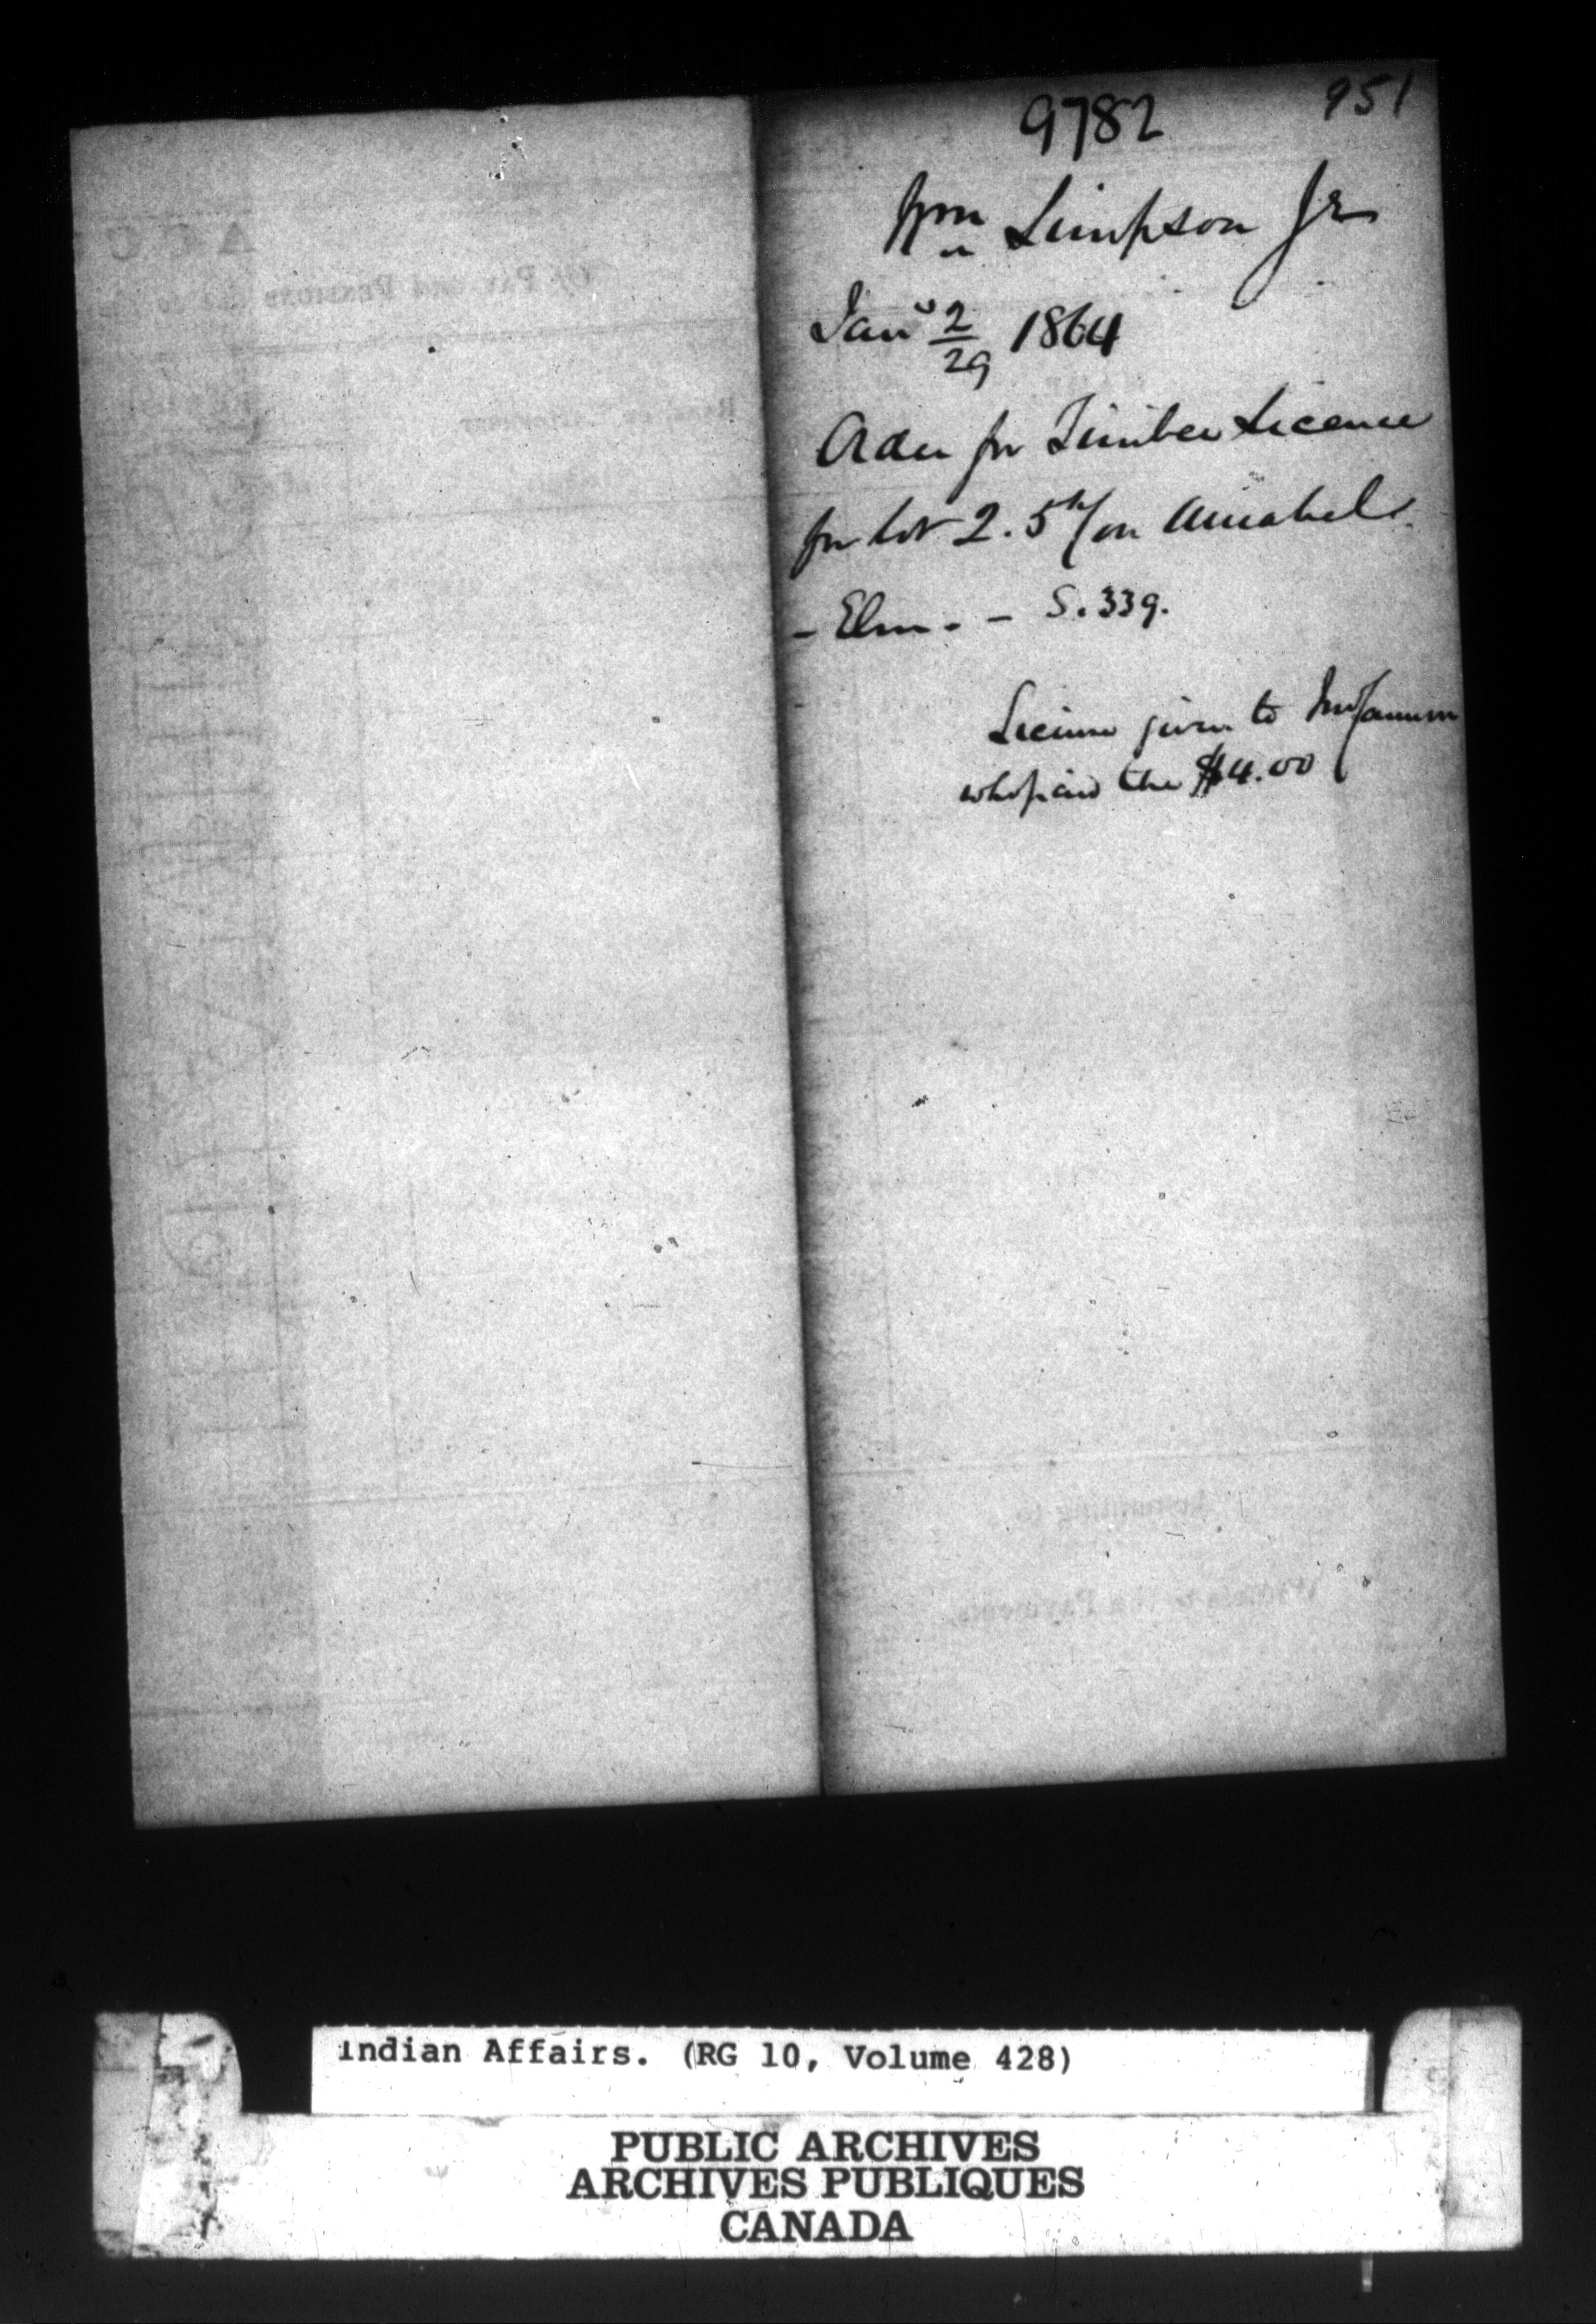 9782 951
Wm Simpson Jr
Jany 2/29 1864
Order for Timber Licence
for lot 2. 5th Con Amabel
- Elm. - S. 339.
License given to
who paid the $4.00
Indian Affairs. (RG 10, Volume 428)
PUBLIC ARCHIVES
ARCHIVES PUBLIQUES
CANADA